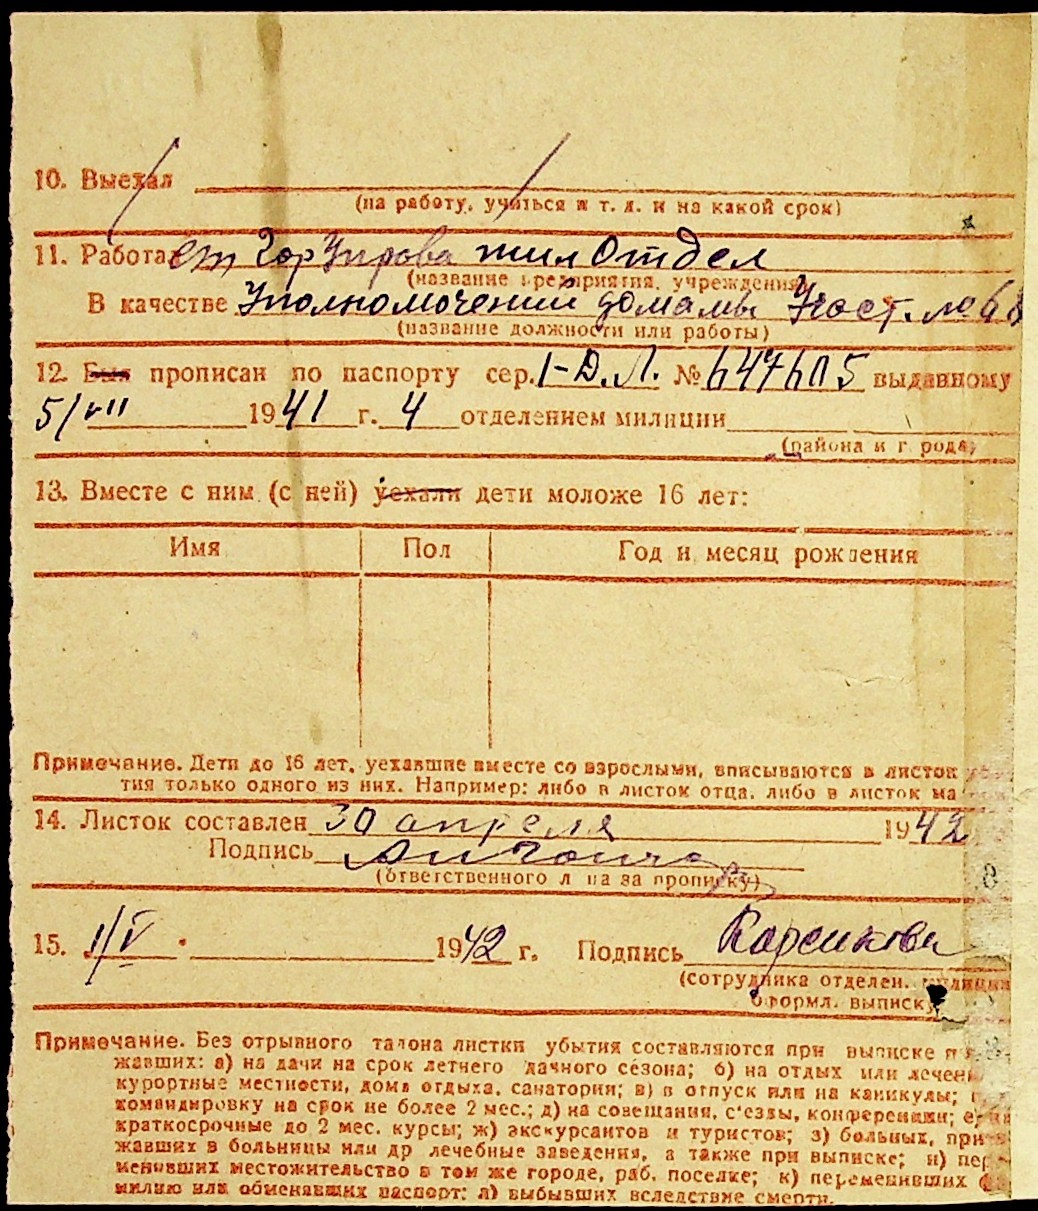 10. Выехал
(на работу, учиться и т. д. и на какой срок)
11. Работа жил Отдел
(название предприятия, учреждения)
В качестве Уполномоченный домами Участ. № 68
(название должности или работы)
12. Был прописан по паспорту сер. 1-Д.Л. № 647605 выданному
5/VII 1941 г. 4 отделением милиции
(района и города)
13. Вместе с ним (с ней) уехали дети моложе 16 лет:
Имя Пол Год и месяц рождения
Примечание. Дети до 16 лет, уехавшие вместе со взрослыми, вписываются в листок
тия только одного из них. Например: либо в листок отца, либо в листок ма
14. Листок составлен 30 апреля 1942
Подпись
(ответственного лица за прописку)
15. 1/V 1942 г. Подпись
(сотрудника отделен. милиции
оформл. выписку
Примечание. Без отрывного талона листки убытия составляются при выписке
жавших: а) на дачи на срок летнего дачного сезона; б) на отдых или лечен
курортные местности, дома отдыха, санатории; в) в отпуск или на каникулы;
командировку на срок не более 2 мес.; д) на совещания, с'езды, конференции; е)
краткосрочные до 2 мес. курсы; ж) экскурсантов и туристов; з) больных, при
жавших в больницы или др лечебные заведения, а также при выписке; и) пер
менивших местожительство в том же городе, раб. поселке; к) переменивших
милию или обменявших паспорт; л) выбывших вследствие смерти.